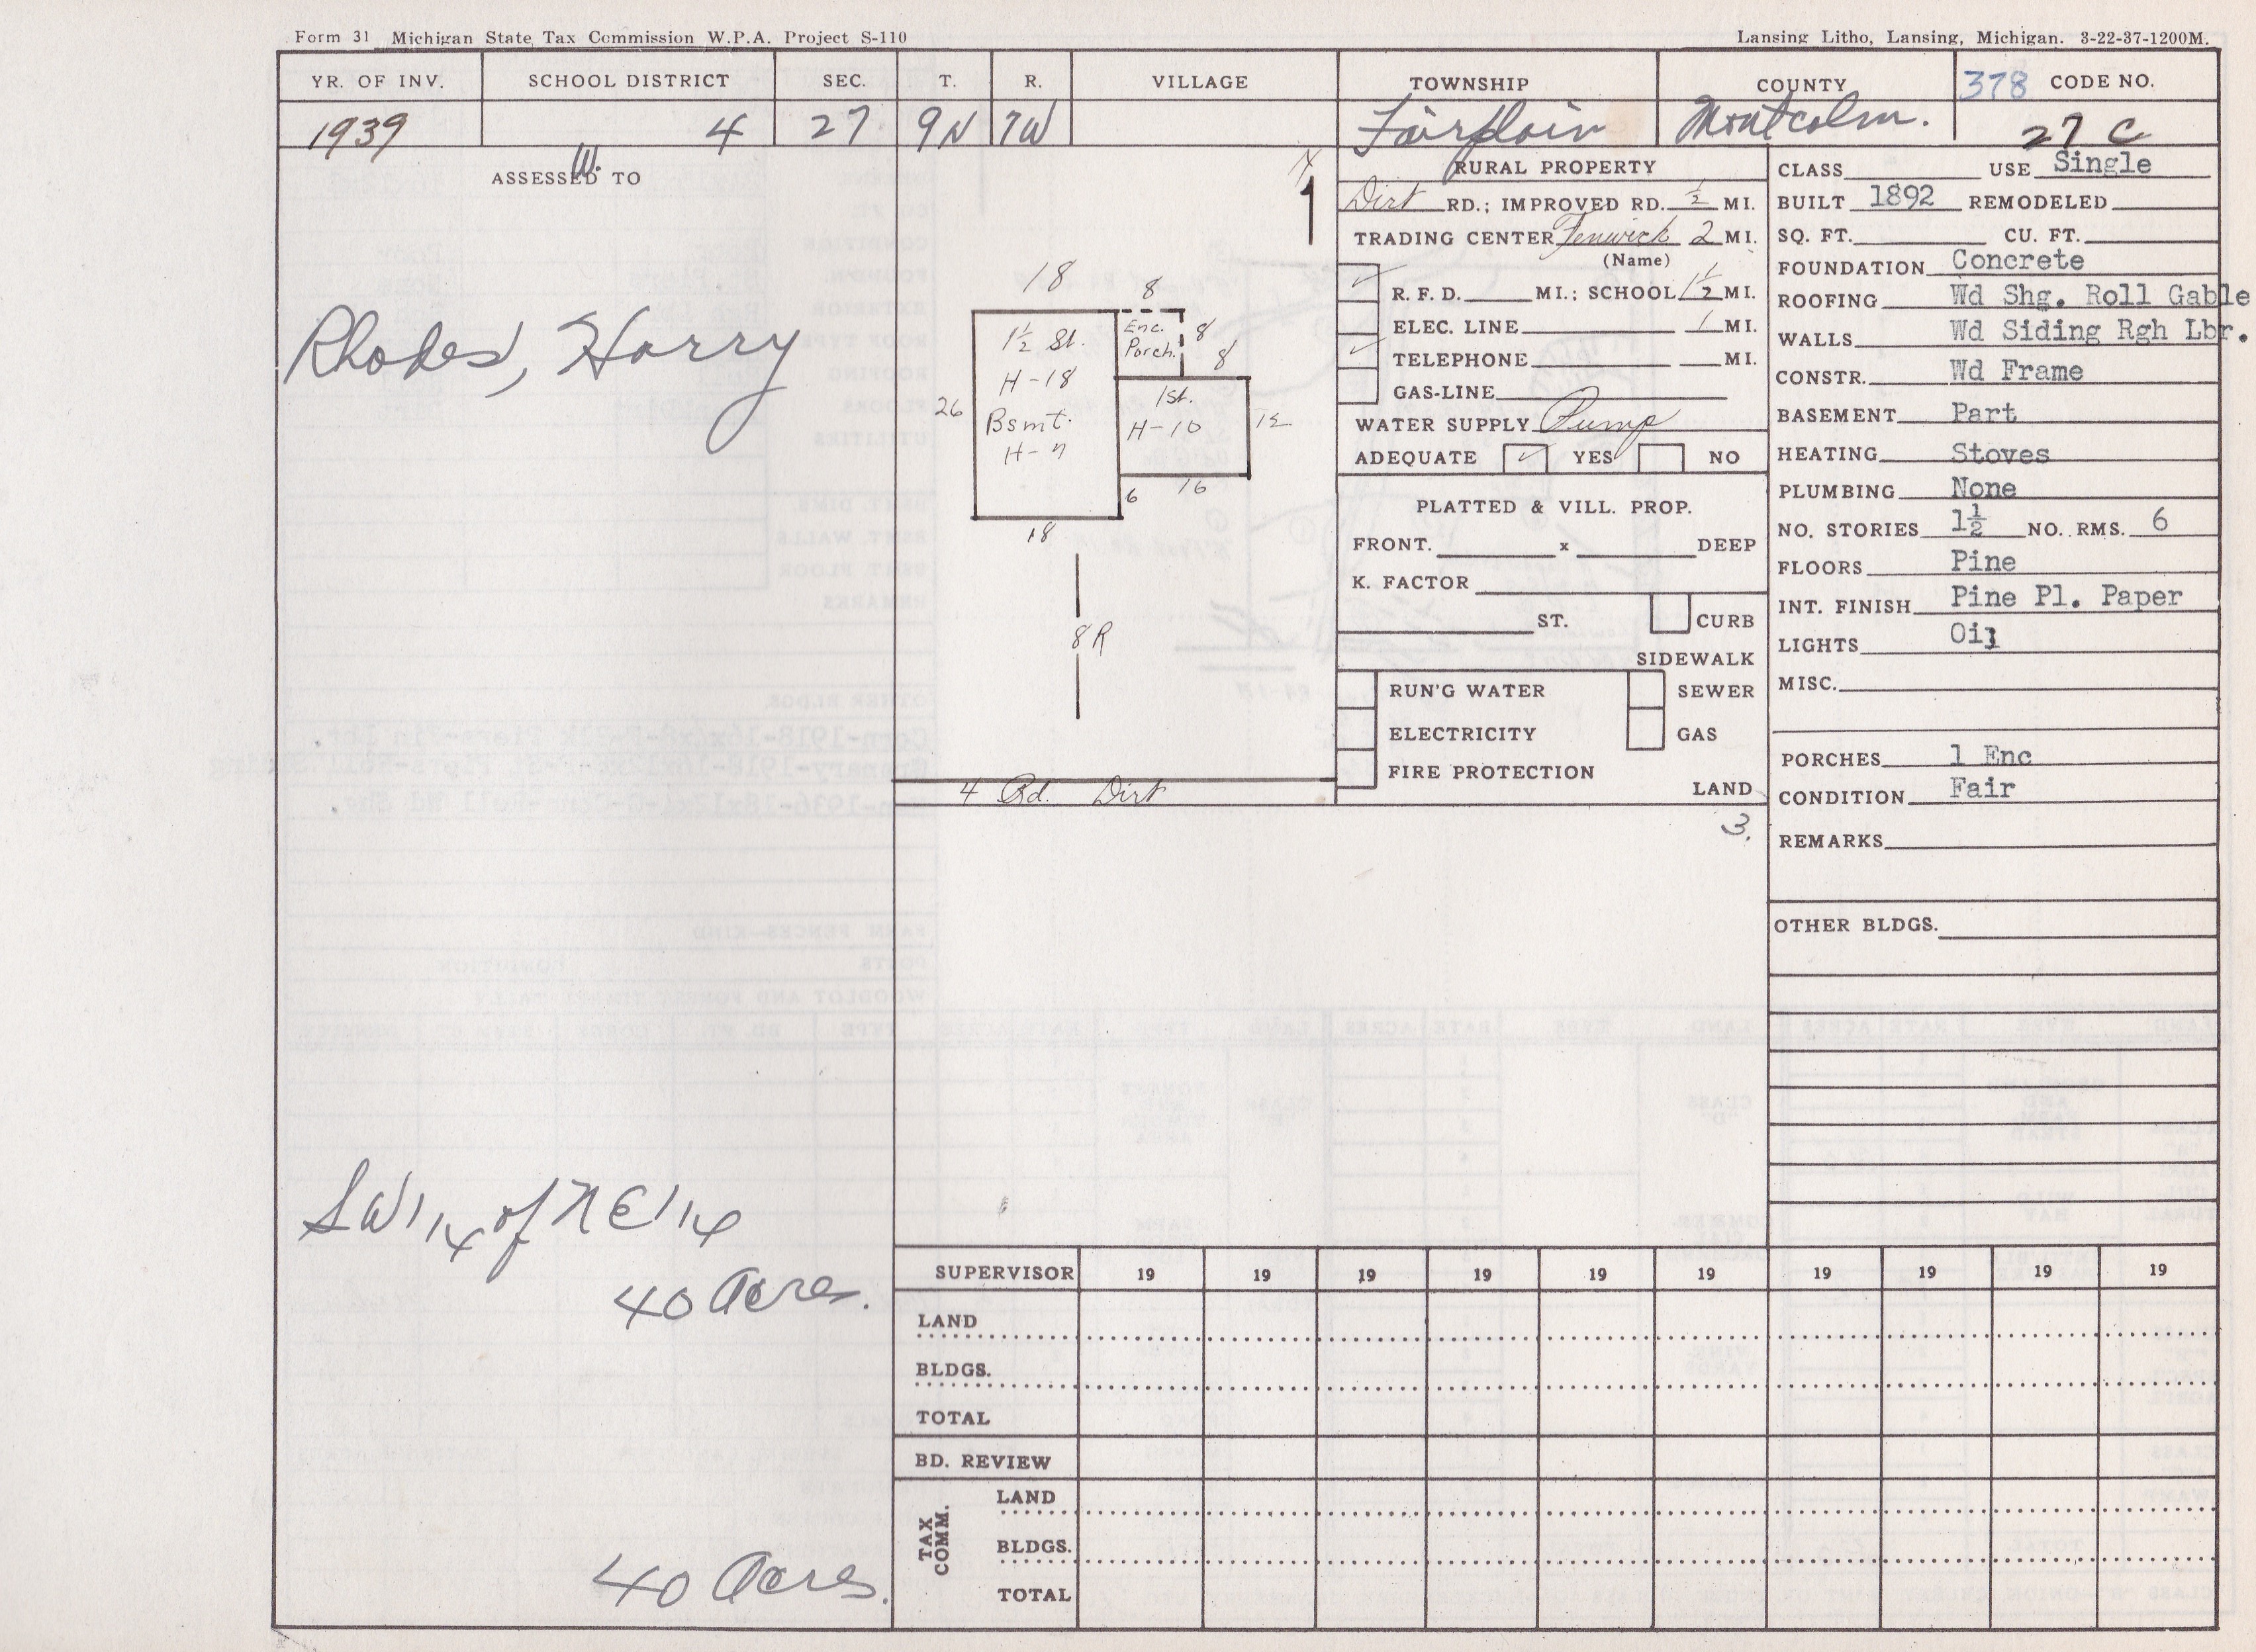 Form 31 Michigan State Tax Commission W.P.A. Project S-110
Lansing Litho, Lansing, Michigan. 3-22-37-1200M.
YR. OF INV. SCHOOL DISTRICT SEC. T. R. VILLAGE TOWNSHIP COUNTY 378 CODE NO.
1939 4 27 9N 7W Fairplain Montcalm. 27 C
W.
ASSESSED TO
Rhodes, Harry
SW 1/4 of NE 1/4
40 Acres.
40 Acres.
N
18
8
1½ St.
H-18
Bsmt.
H-7
26
Enc.
Porch.
8
8
1St.
H-10
12
6
16
18
8R
4 Rd. Dirt
RURAL PROPERTY
Dirt RD.; IMPROVED RD. ½ MI.
TRADING CENTER Fenwick 2 MI.
(Name)
✓ R. F. D. MI.; SCHOOL 1½ MI.
ELEC. LINE 1 MI.
✓ TELEPHONE MI.
GAS-LINE
WATER SUPPLY Pump
ADEQUATE ✓ YES NO
PLATTED & VILL. PROP.
FRONT. x DEEP
K. FACTOR
ST. CURB
SIDEWALK
RUN'G WATER SEWER
ELECTRICITY GAS
FIRE PROTECTION
LAND
3.
CLASS USE Single
BUILT 1892 REMODELED
SQ. FT. CU. FT.
FOUNDATION Concrete
ROOFING Wd Shg. Roll Gable
WALLS Wd Siding Rgh Lbr.
CONSTR. Wd Frame
BASEMENT Part
HEATING Stoves
PLUMBING None
NO. STORIES 1½ NO. RMS. 6
FLOORS Pine
INT. FINISH Pine Pl. Paper
LIGHTS Oil
MISC.
PORCHES 1 Enc
CONDITION Fair
REMARKS
OTHER BLDGS.
SUPERVISOR 19 19 19 19 19 19 19 19 19 19
LAND
BLDGS.
TOTAL
BD. REVIEW
TAX COMM.
LAND
BLDGS.
TOTAL